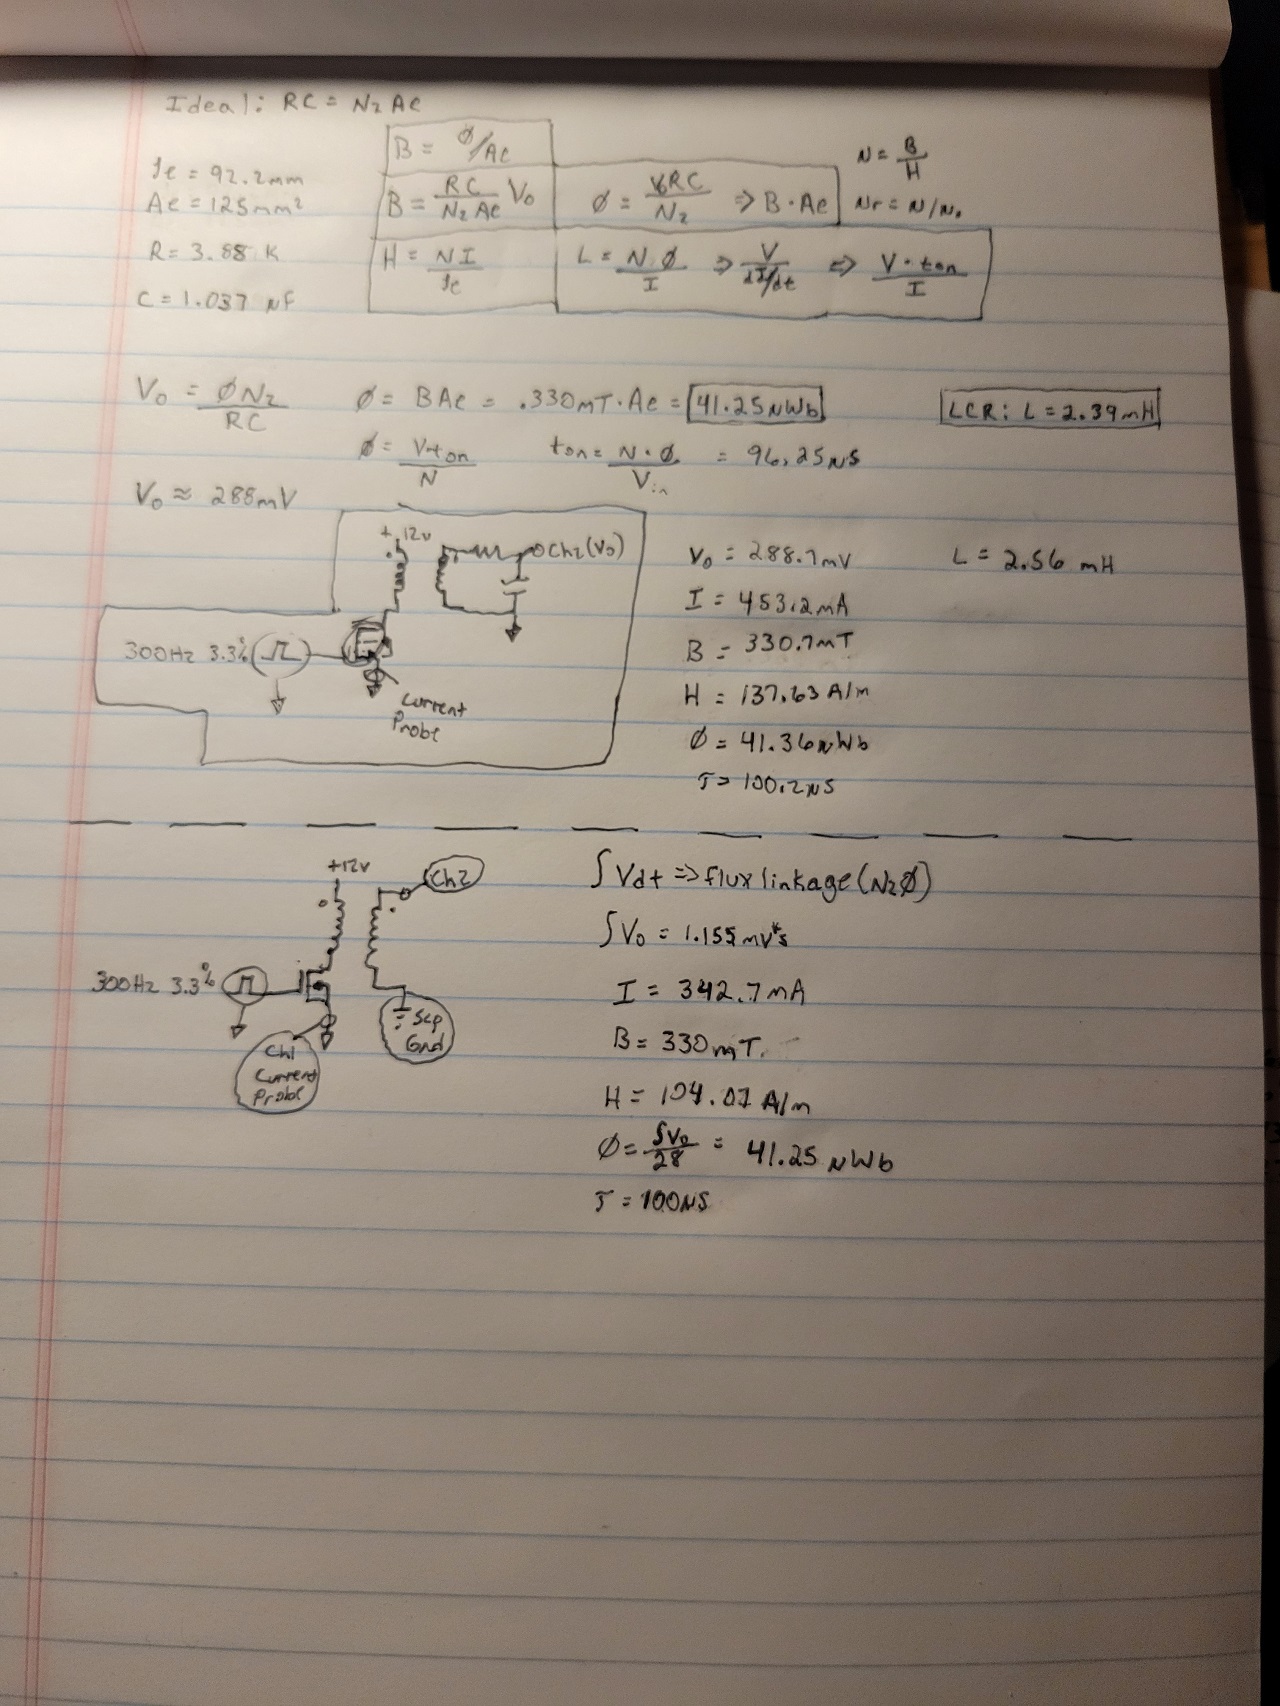 Ideal: RC = N₂ Ae
le = 92.2mm
Ae = 125mm²
R = 3.88 K
C = 1.037 µF
B = Ø/Ae
B = RC/N₂Ae V₀
Ø = V₀RC/N₂ ⇒ B·Ae
H = NI/le
L = NØ/I ⇒ V/dI/dt ⇒ V·ton/I
µ = B/H
µr = µ/µ₀
V₀ = ØN₂/RC
Ø = BAe = .330mT·Ae = 41.25µWb
LCR: L = 2.39mH
Ø = V·ton/N
ton = N·Ø/Vin = 96.25µS
V₀ ≈ 288mV
+12v
Ch2(V₀)
300Hz 3.3%
Current
Probe
V₀ = 288.7mV
L = 2.56 mH
I = 453.2mA
B = 330.7mT
H = 137.63 A/m
Ø = 41.36µWb
T = 100.2µS
+12v
Ch2
300Hz 3.3%
Scp
Gnd
Ch1
Current
Probe
∫Vdt ⇒ flux linkage (N₂Ø)
∫V₀ = 1.155mV*s
I = 342.7mA
B = 330mT
H = 104.07 A/m
Ø = ∫V₀/28 = 41.25 µWb
T = 100µS